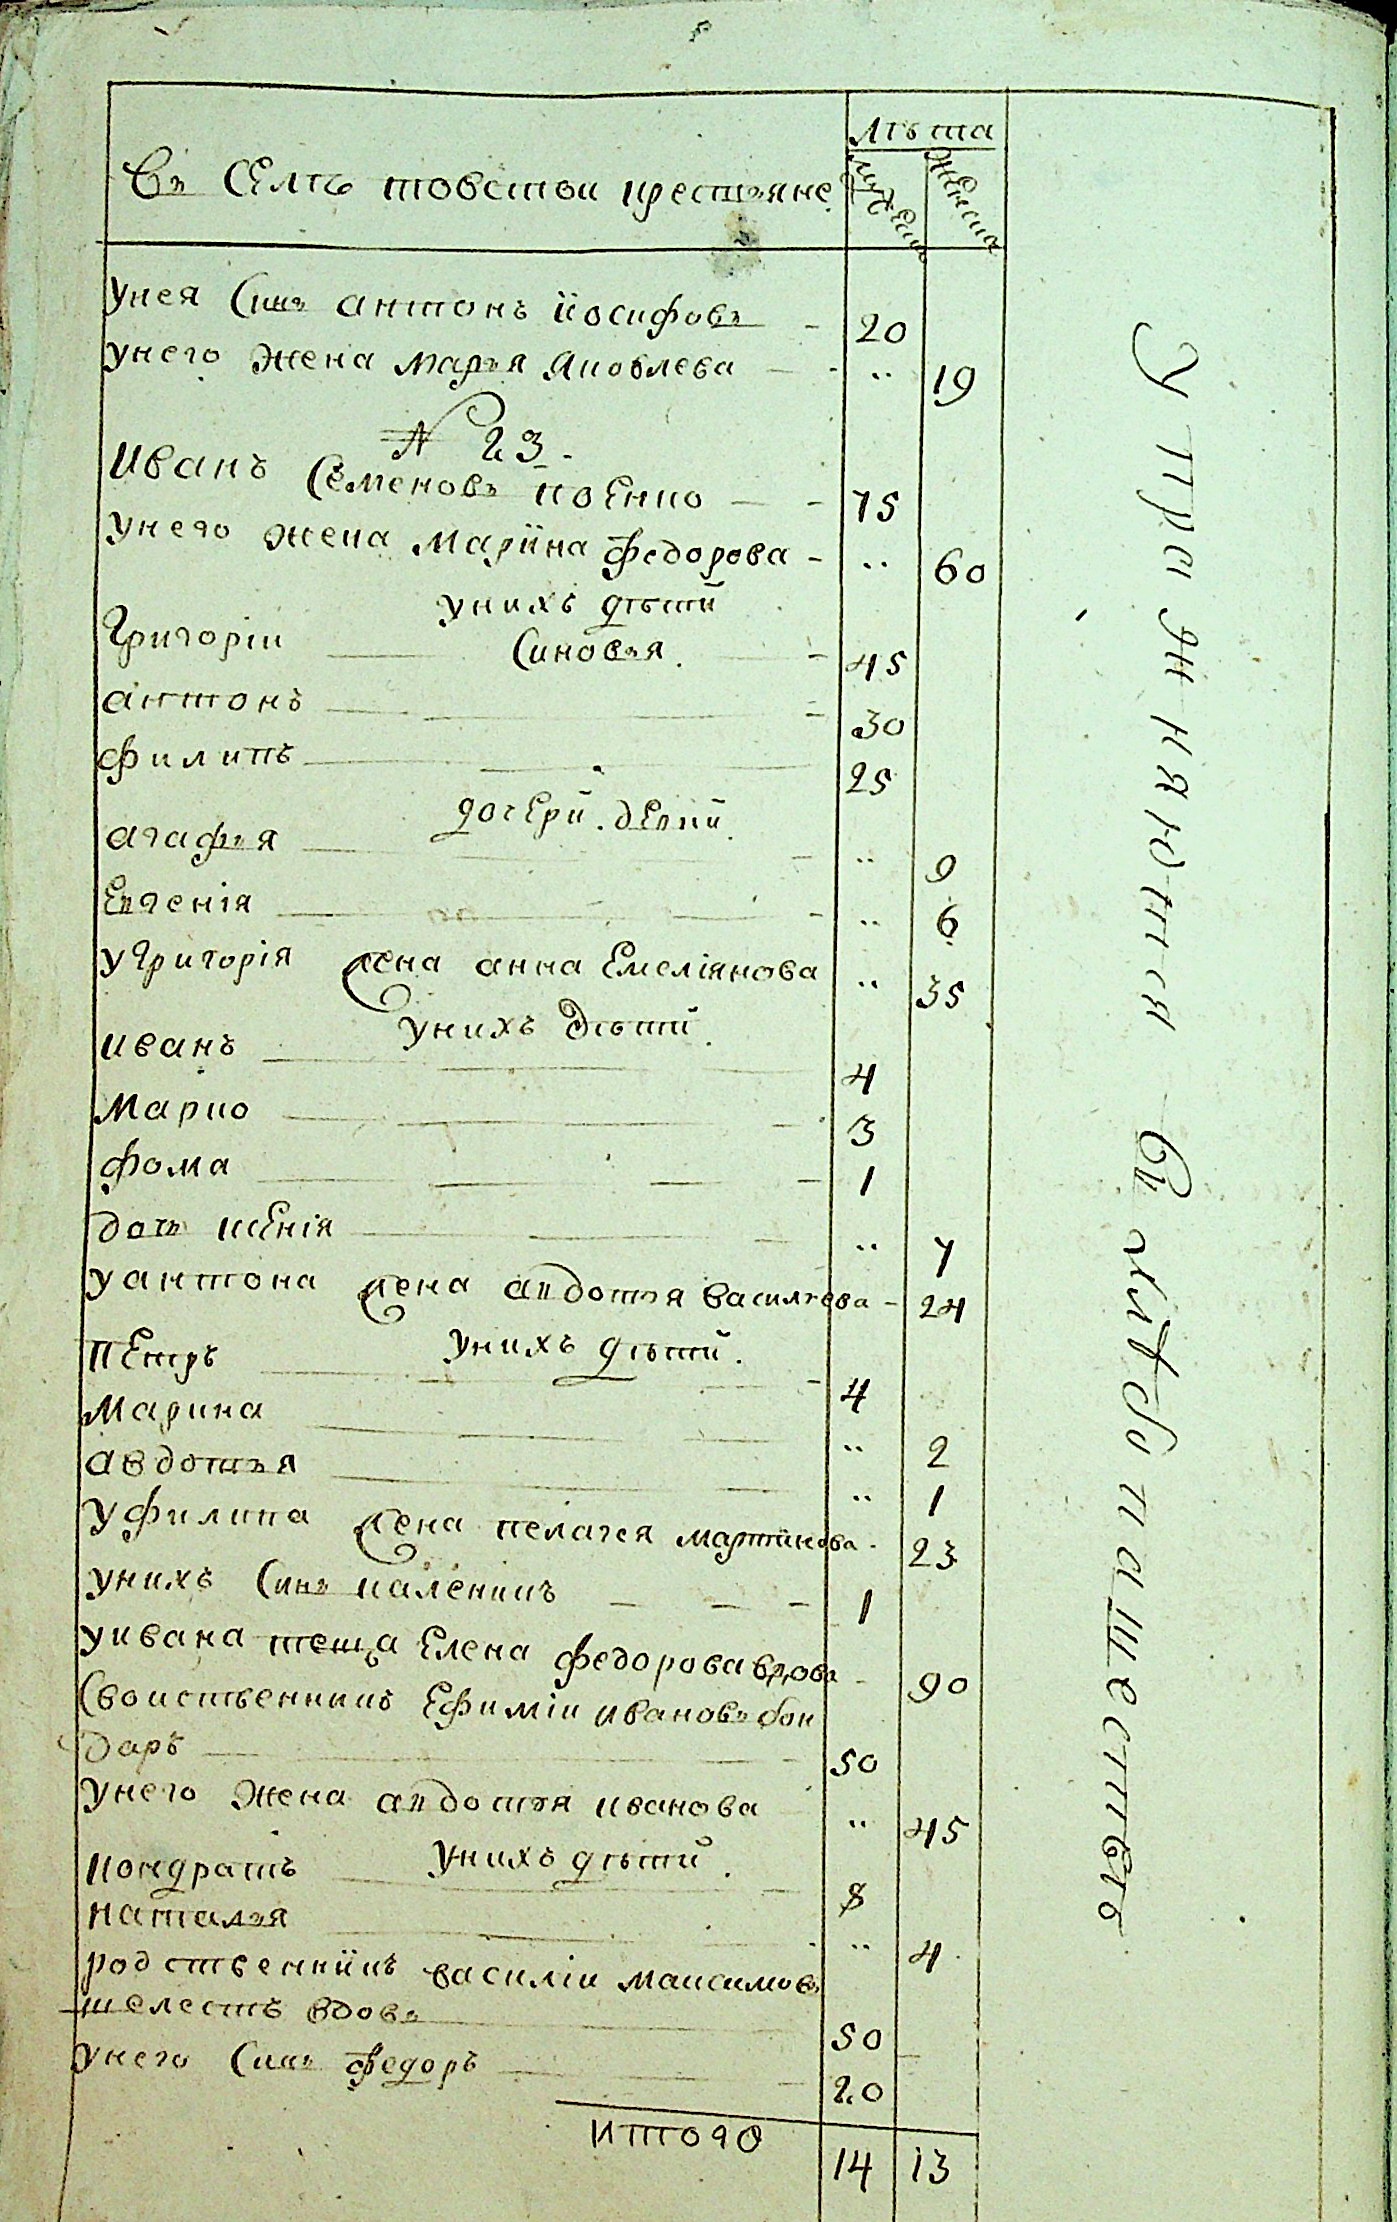 Лѣта
Въ Селѣ товстои крестьяне
мужеска
женска
Унея Синъ антонъ иосифовъ - 20
унего жена марья яковлева - " 19
N 23.
Иванъ Семеновъ коенко - 75
унего жена мариина федорова - " 60
унихъ дѣтй
Синовья.
Григоріи - 45
антонъ - 30
филипъ 25
дочерй.
агафья - " 9
Евгенія - " 6
уГригорія жена анна Емеліянова " 35
унихъ дѣтй.
иванъ 4
Марко - 3
фома - 1
дочь ксенія - " 7
уантона жена авдотья василева - 24
унихъ дѣтй.
Петръ - 4
Марина " 2
авдотья " 1
уфилипа жена пелагея мартинова - 23
унихъ Синъ каленикъ - - - 1
уивана теща Елена федорова вдова - 90
Своиственникъ Ефиміи ивановъ бон
даръ 50
унего жена авдотья иванова " 45
унихъ дѣтй.
кондратъ - 8
наталья " 4
родственникъ василіи максимовъ
шелестъ вдовъ 50
унего Синъ федоръ - 20
итого 14 13
Упражняются въ хлѣбопашествѣ